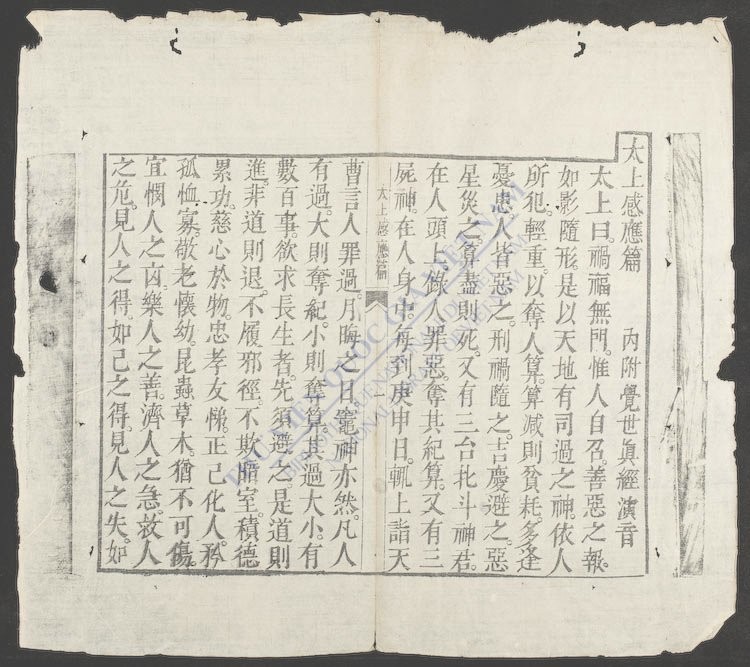 太上感應篇 內附覺世眞經演音
太上曰。禍福無門。惟人自召。善惡之報。
如影隨形。是以天地有司過之神。依人
所犯。輕重。以奪人算。算減則貧耗。多逢
憂患。人皆惡之。刑禍隨之。吉慶避之。惡
星災之。算盡則死。又有三台北斗神君。
在人頭上。錄人罪惡。奪其紀算。又有三
屍神。在人身中。每到庚申日。輒上詣天
太上感應篇
一
曹。言人罪過。月晦之日。竈神亦然。凡人
有過。大則奪紀。小則奪算。其過大小。有
數百事。欲求長生者。先須避之。是道則
進。非道則退。不履邪徑。不欺暗室。積德
累功。慈心於物。忠孝友悌。正己化人。矜
孤恤寡。敬老懷幼。昆蟲草木。猶不可傷。
宜憫人之凶。樂人之善。濟人之急。救人
之危。見人之得。如己之得。見人之失。如